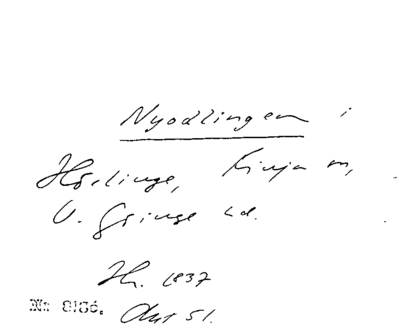 Nyodlingen i
Hörlinge, Finja sn,
V. Göinge hd.
Hr. 1837
Nr 8186. Akt 51.